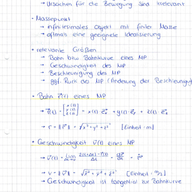 → Ursachen für die Bewegung sind irrelevant
• Massepunkt
→ infinitesimales Objekt mit finiter Masse
→ oftmals eine geeignete Idealisierung
• relevante Größen
→ Bahn bzw. Bahnkurve eines MP
→ Geschwindigkeit des MP
→ Beschleunigung des MP
→ ggf. Ruck des MP (Änderung der Beschleunigung)
• Bahn r(t) eines MP
• Geschwindigkeit v(t) eines MP
→ Geschwindigkeit ist tangential zur Bahnkurve